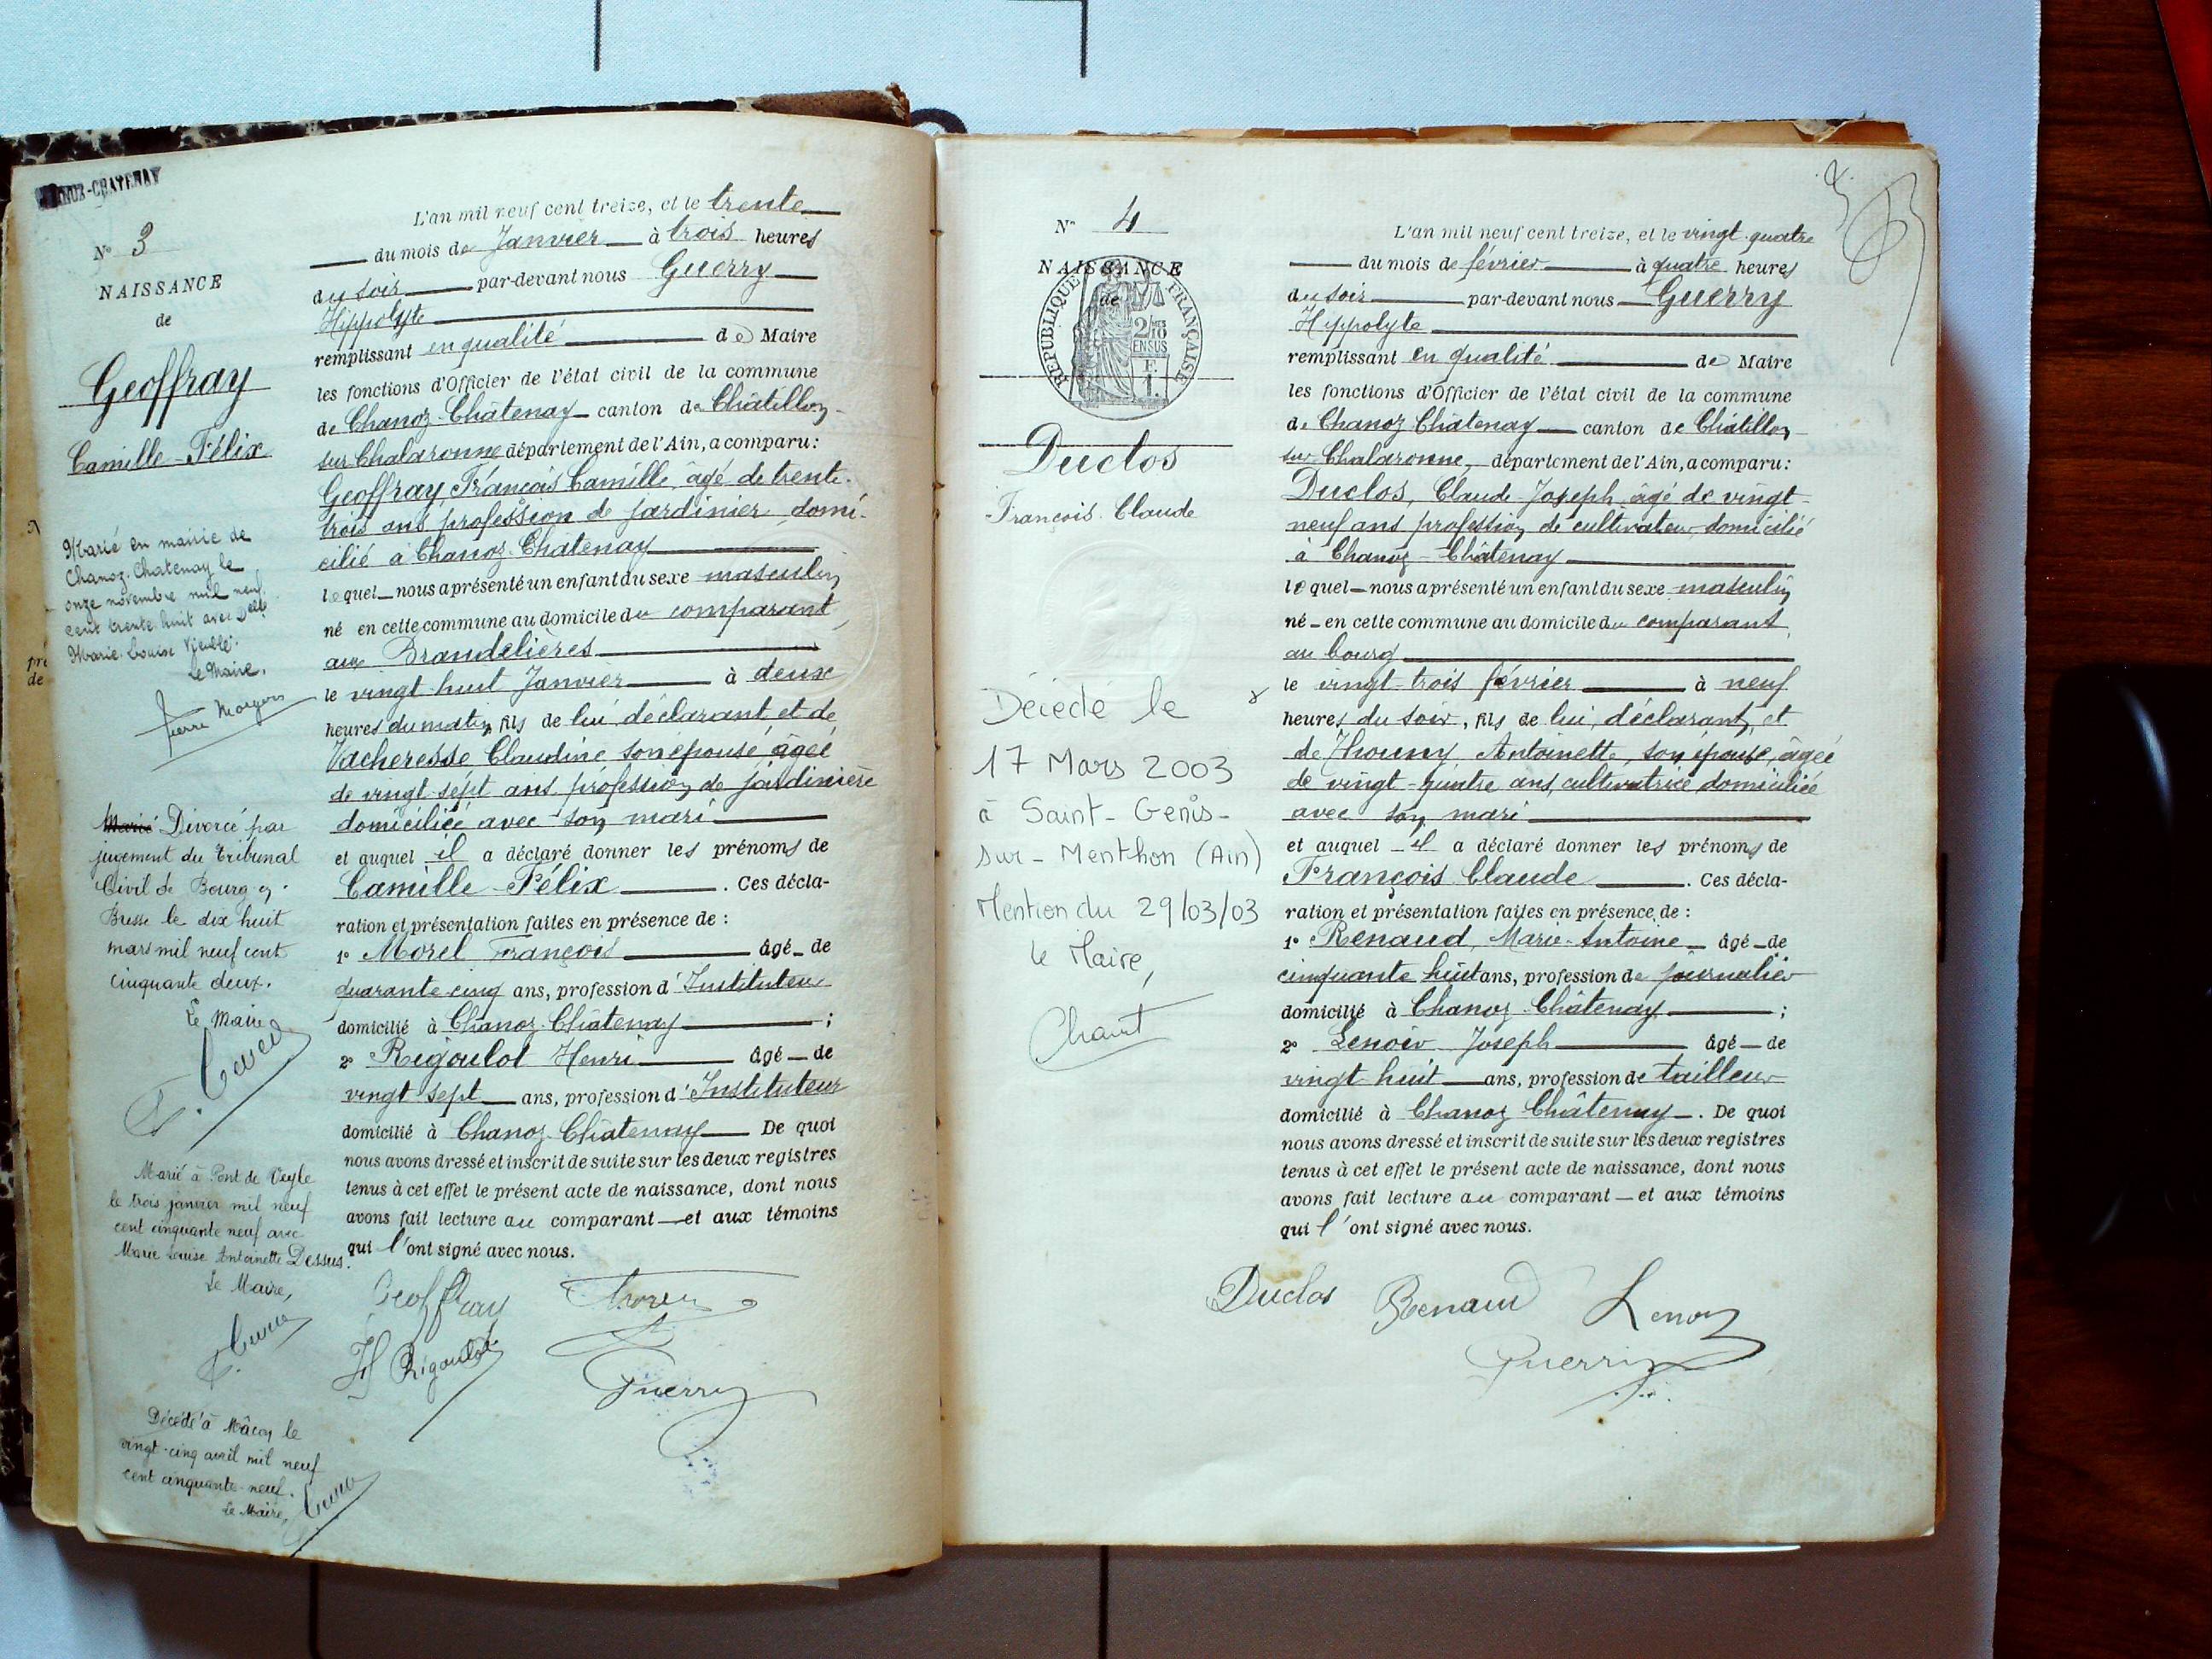 CHANOZ-CHATENAY
N° 3
NAISSANCE
de
Geoffray
Camille-Félix
Marié en mairie de
Chanoz-Chatenay le
onze novembre mil neuf
cent trente huit avec Delle
Marie Louise
Le Maire.
Pierre
Marié Divorcé par
jugement du Tribunal
Civil de Bourg en
Bresse le dix huit
mars mil neuf cent
cinquante deux.
Le Maire
Marié à Pont de Veyle
le trois janvier mil neuf
cent cinquante neuf avec
Marie Louise Antoinette Dessus.
Le Maire,
Décédé à Mâcon le
vingt-cinq avril mil neuf
cent cinquante-neuf.
Le Maire,
L'an mil neuf cent treize, et le trente
du mois de Janvier à trois heures
du soir par-devant nous Guerry
Hippolyte
remplissant en qualité de Maire
les fonctions d'Officier de l'état civil de la commune
de Chanoz-Châtenay canton de Châtillon-
sur Chalaronne département de l'Ain, a comparu:
Geoffray François Camille, âgé de trente-
trois ans profession de jardinier domi-
cilié à Chanoz-Chatenay
lequel nous a présenté un enfant du sexe masculin
né en cette commune au domicile du comparant,
aux Brandelières
le vingt-huit Janvier à deux
heures du matin, fils de lui, déclarant, et de
Vacheresse Claudine, son épouse, âgée
de vingt sept ans profession de jardinière
domiciliée avec son mari
et auquel il a déclaré donner les prénoms de
Camille-Félix. Ces décla-
ration et présentation faites en présence de :
1° Morel François âgé de
quarante-cinq ans, profession d'Instituteur
domicilié à Chanoz-Châtenay ;
2° Rigoulot Henri âgé de
vingt sept ans, profession d'Instituteur
domicilié à Chanoz-Châtenay De quoi
nous avons dressé et inscrit de suite sur les deux registres
tenus à cet effet le présent acte de naissance, dont nous
avons fait lecture au comparant et aux témoins
qui l'ont signé avec nous.
Geoffray Morel
H Rigoulot Guerry
N° 4
NAISSANCE
de
REPUBLIQUE FRANÇAISE
2/10 EN SUS
1 F.
Duclos
François Claude
Décédé le
17 Mars 2003
à Saint-Genis-
sur-Menthon (Ain)
Mention du 29/03/03
le Maire,
L'an mil neuf cent treize, et le vingt-quatre
du mois de février à quatre heures
du soir par-devant nous Guerry
Hippolyte
remplissant en qualité de Maire
les fonctions d'Officier de l'état civil de la commune
de Chanoz-Châtenay canton de Châtillon-
sur-Chalaronne, département de l'Ain, a comparu:
Duclos, Claude-Joseph, âgé de vingt-
neuf ans profession de cultivateur, domicilié
à Chanoz-Châtenay
lequel nous a présenté un enfant du sexe masculin
né en cette commune au domicile du comparant,
au bourg
le vingt-trois février à neuf
heures du soir, fils de lui, déclarant, et
de Antoinette, son épouse, âgée
de vingt-quatre ans, cultivatrice, domiciliée
avec son mari
et auquel il a déclaré donner les prénoms de
François Claude. Ces décla-
ration et présentation faites en présence de :
1° Renaud, Marie-Antoine âgé de
cinquante huit ans, profession de journalier
domicilié à Chanoz-Châtenay ;
2° Lenoir Joseph âgé de
vingt-huit ans, profession de tailleur
domicilié à Chanoz Châtenay. De quoi
nous avons dressé et inscrit de suite sur les deux registres
tenus à cet effet le présent acte de naissance, dont nous
avons fait lecture au comparant et aux témoins
qui l'ont signé avec nous.
Duclos Renaud Lenoir
Guerry